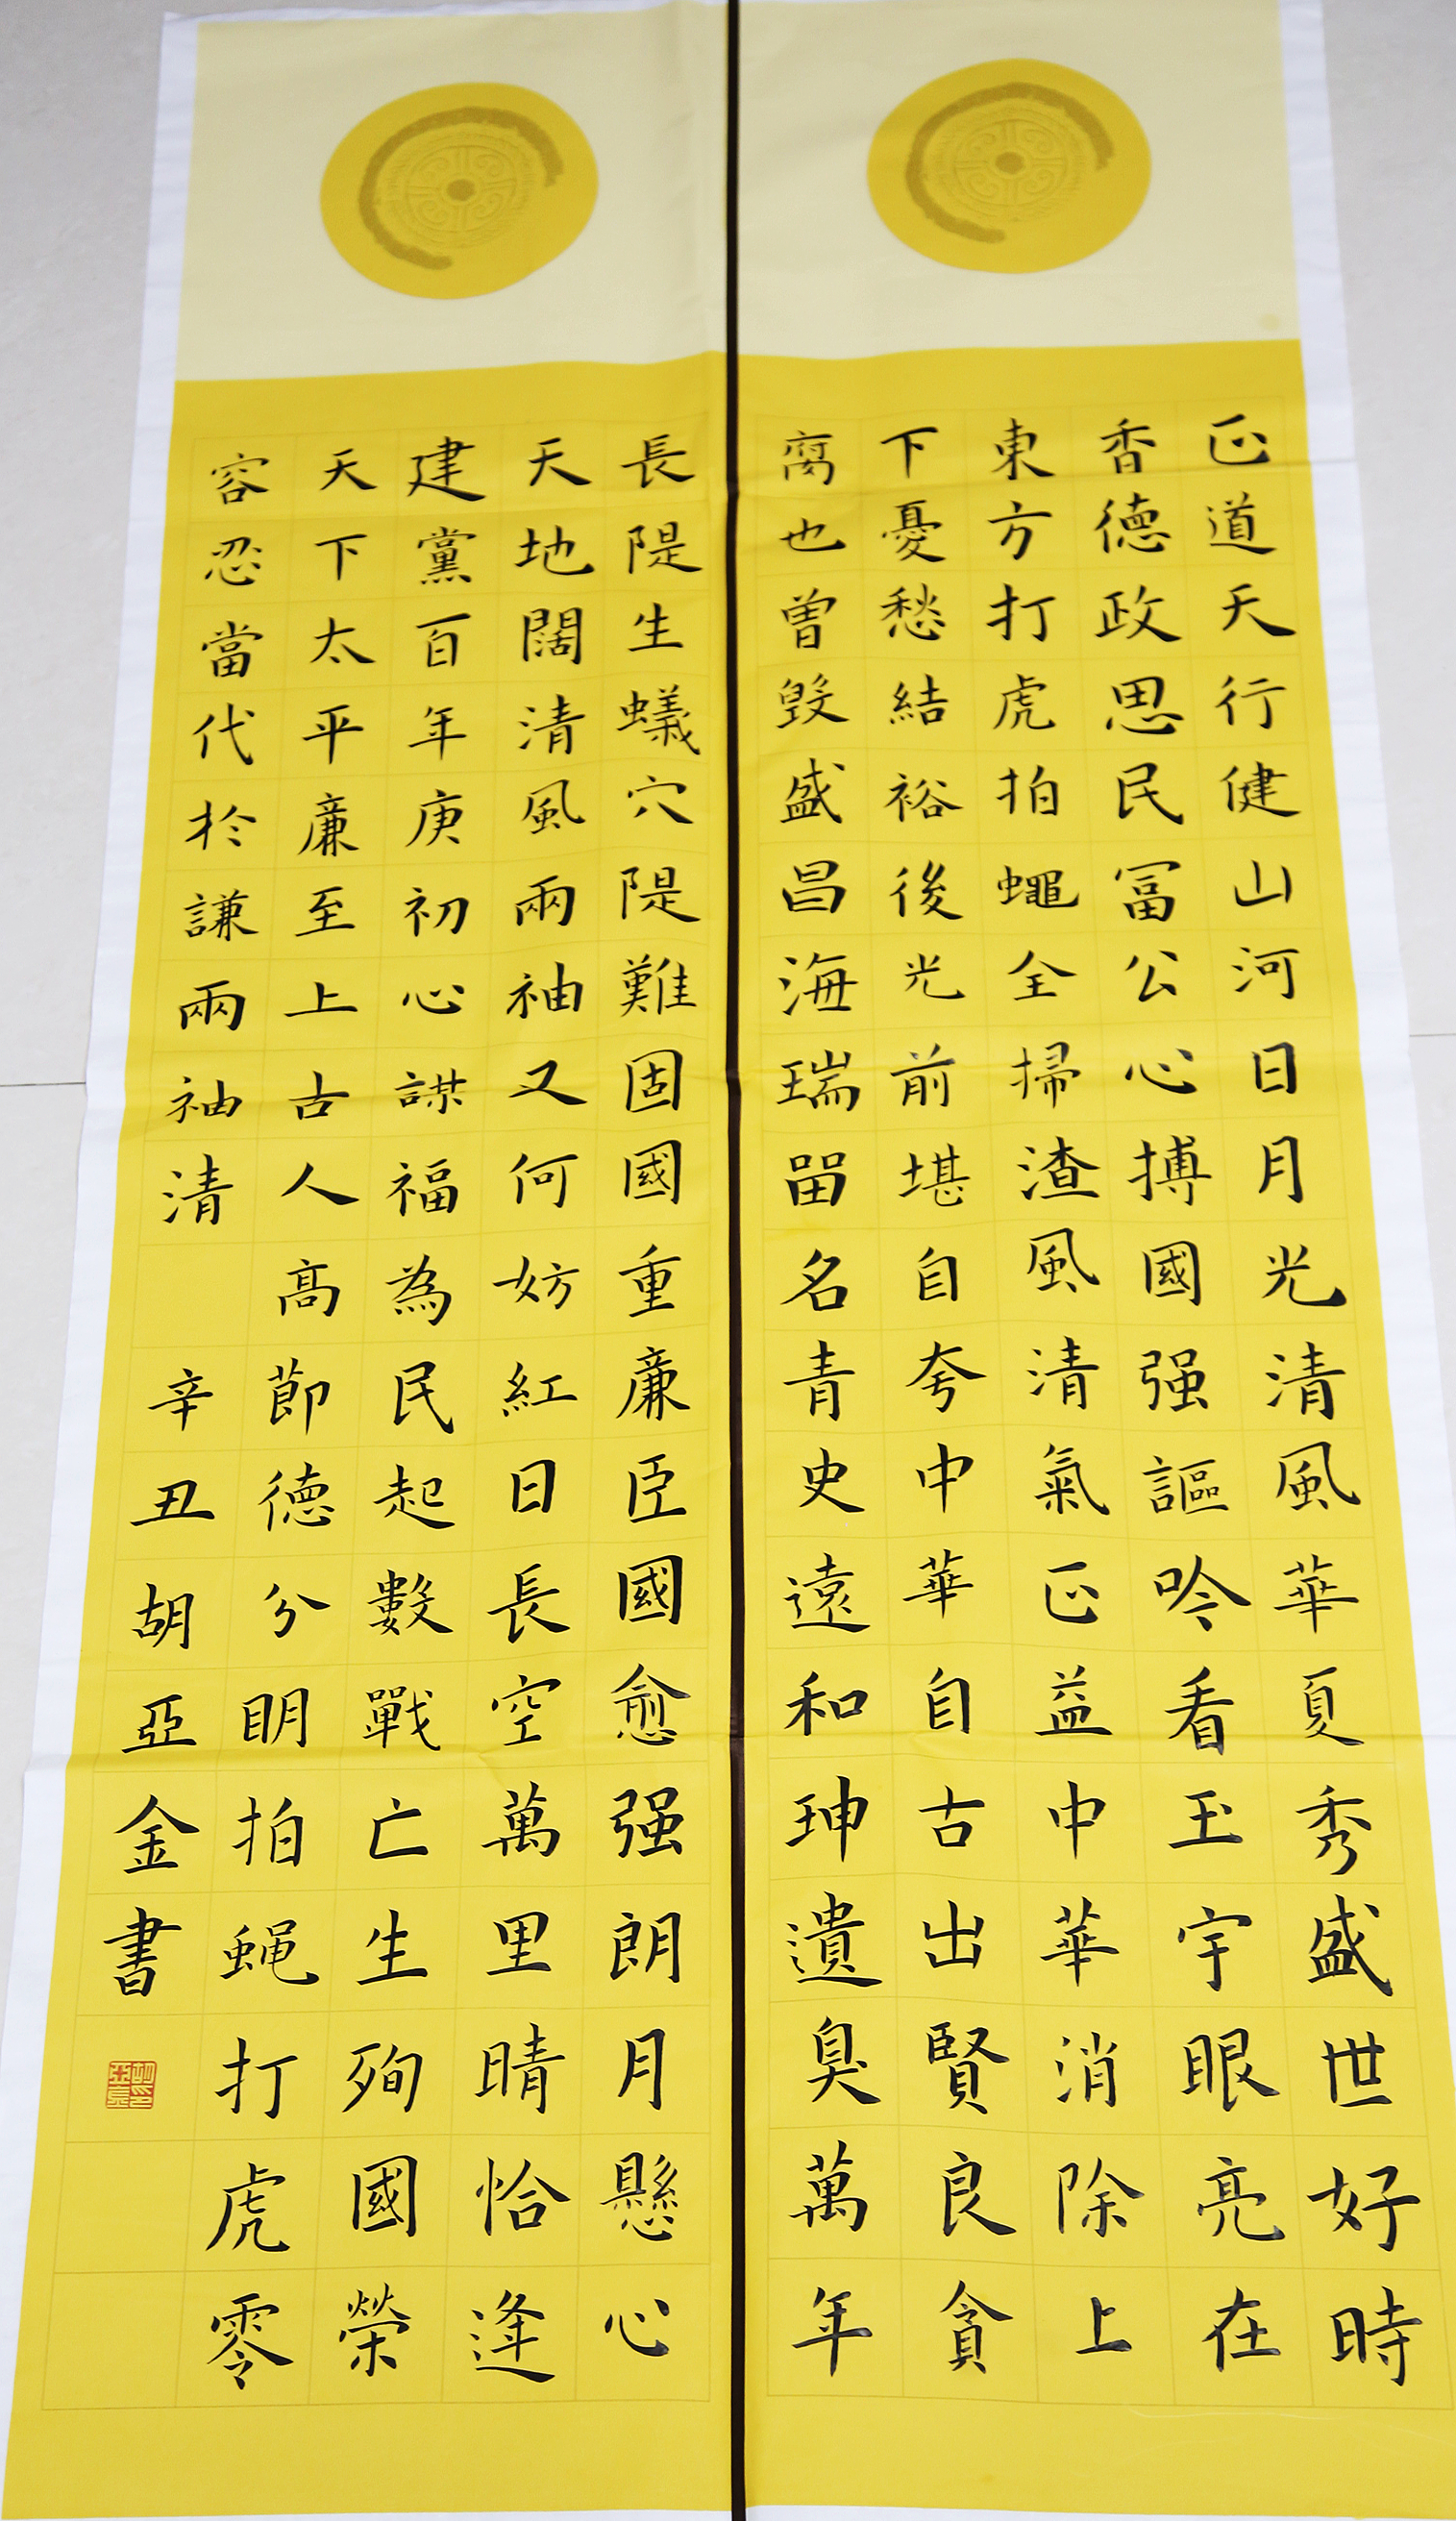 正道天行健山河日月光清風華夏秀盛世好時
香德政思民富公心搏國强謳吟看玉宇眼亮在
東方打虎拍蠅全掃渣風清氣正益中華消除上
下憂愁結裕後光前堪自夸中華自古出賢良貪
腐也曾毀盛昌海瑞留名青史遠和珅遺臭萬年
長隄生蟻穴隄難固國重廉臣國愈强朗月懸心
天地闊清風兩袖又何妨紅日長空萬里晴恰逢
建黨百年庚初心謀福為民起數戰亡生殉國榮
天下太平廉至上古人高節德分明拍蝇打虎零
容忍當代於謙兩袖清
辛丑胡亞金書